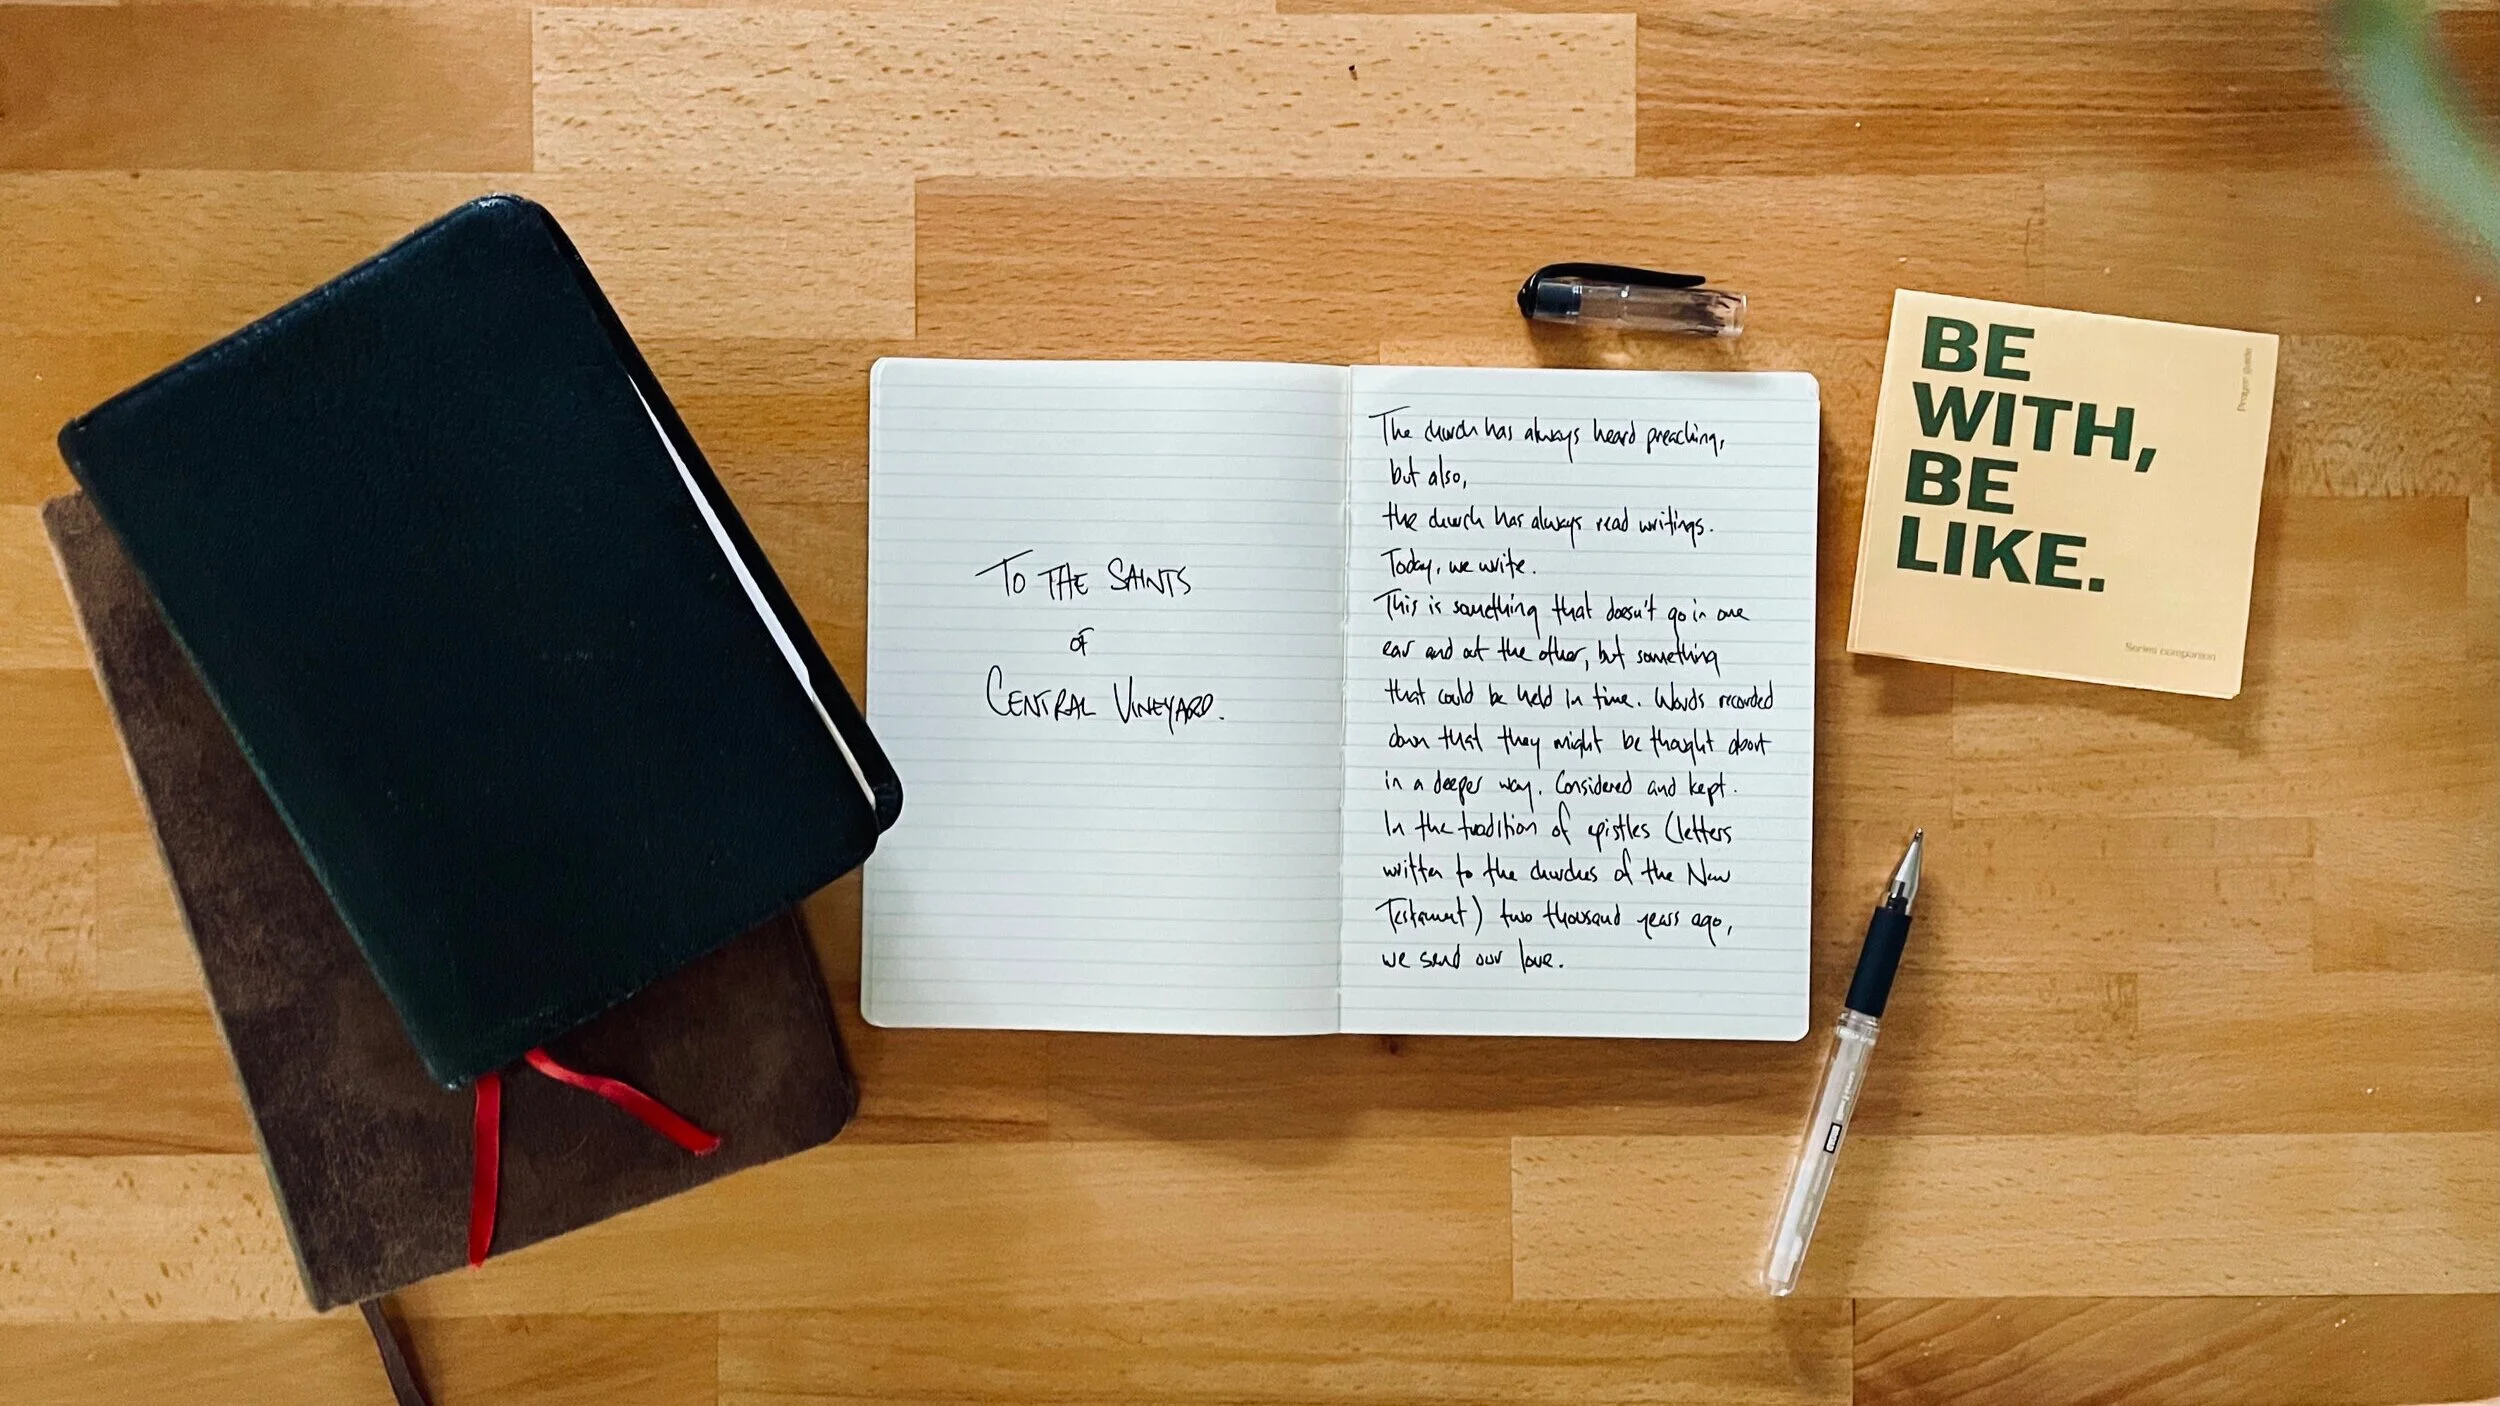 TO THE SAINTS
OF
CENTRAL VINEYARD.
The church has always heard preaching,
but also,
the church has always read writings.
Today, we write.
This is something that doesn't go in one
ear and out the other, but something
that could be held in time. Words recorded
down that they might be thought about
in a deeper way. Considered and kept.
In the tradition of epistles (letters
written to the churches of the New
Testament) two thousand years ago,
we send our love.
BE
WITH,
BE
LIKE.
Prayer Guide
Series companion